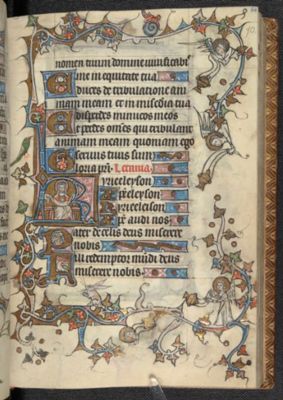 nomen tuum domine uiuificabis
me in equitate tua
duces de tribulatione ani
mam meam et in misericordia tua
disperdes inimicos meos
et perdes omnes qui tribulant
animam meam quoniam ego
seruus tuus sum
Gloria pri. Letania
Kyrieleyson
Xpeleyson
Kyrieleyson
Xpe audi nos
Pater de celis deus miserere
nobis
Fili redemptor mundi deus
miserere nobis